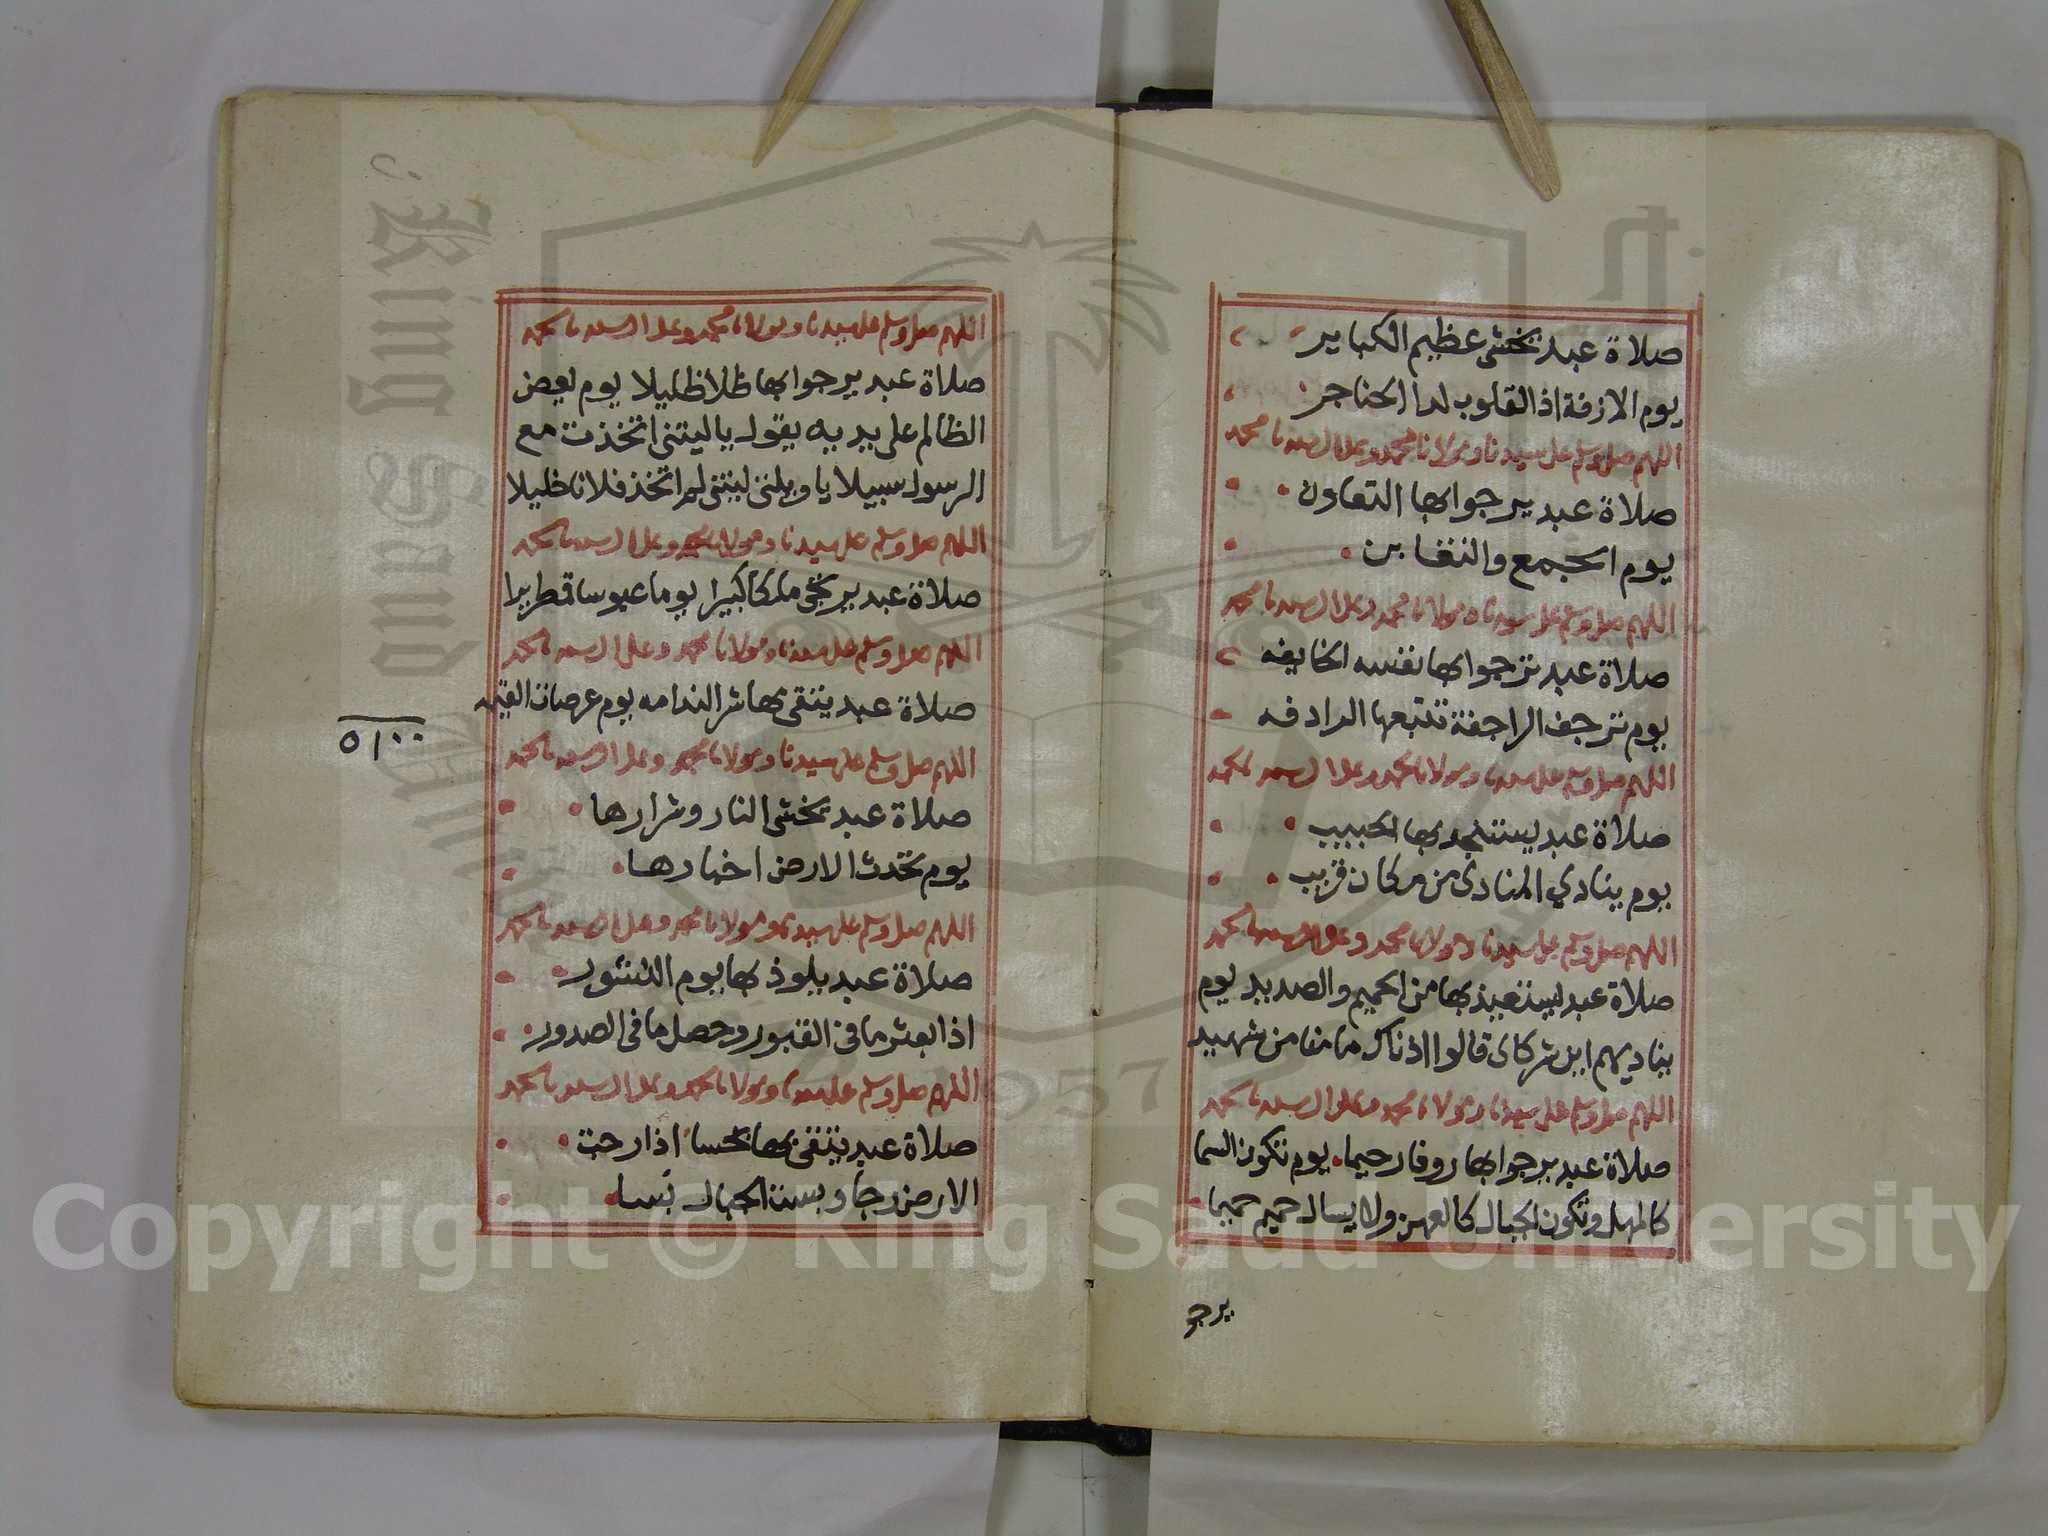 صلاة عبد يخشى عظيم الكباير
يوم الازفة اذ القلوب لدا الحناجر
اللهم صل وسلم على سيدنا ومولانا محمد وعلى ال سيدنا محمد
صلاة عبد يرجوا بها التعاون
يوم الجمع والتغابن
اللهم صل وسلم على سيدنا ومولانا محمد وعلى ال سيدنا محمد
صلاة عبد ترجوا بها نفسه الخايفه
يوم ترجف الراجفة تتبعها الرادفه
اللهم صل وسلم على سيدنا ومولانا محمد وعلى ال سيدنا محمد
صلاة عبد يستنجد بها الحبيب
يوم ينادي المنادى من مكان قريب
اللهم صل وسلم على سيدنا ومولانا محمد وعلى ال سيدنا محمد
صلاة عبد يستعيذ بها من الحميم والصديد يوم
يناديهم اين شركاى قالوا اذناك ما منا من شهيد
اللهم صل وسلم على سيدنا ومولانا محمد وعلى ال سيدنا محمد
صلاة عبد يرجوا بها روفا رحيما يوم تكون السما
كالمهل وتكون الجبال كالعهن ولا يسال حميم حميما
يرجو
اللهم صل وسلم على سيدنا ومولانا محمد وعلى ال سيدنا محمد
صلاة عبد يرجوا بها ظلا ظليلا يوم يعض
الظالم على يديه يقول ياليتنى اتخذت مع
الرسول سبيلا يا ويلتى ليتنى لم اتخذ فلانا خليلا
اللهم صل وسلم على سيدنا ومولانا محمد وعلى ال سيدنا محمد
صلاة عبد يرتجى ملكا كبيرا يوما عبوسا قمطريرا
اللهم صل وسلم على سيدنا ومولانا محمد وعلى ال سيدنا محمد
صلاة عبد يتقى بها شر الندامه يوم عرصات القيمه
اللهم صل وسلم على سيدنا ومولانا محمد وعلى ال سيدنا محمد
صلاة عبد يخشى النار وشرارها
يوم تحدث الارض اخبارها
اللهم صل وسلم على سيدنا ومولانا محمد وعلى ال سيدنا محمد
صلاة عبد يلوذ بها يوم النشور
اذا بعثر ما فى القبور وحصل ما فى الصدور
اللهم صل وسلم على سيدنا ومولانا محمد وعلى ال سيدنا محمد
صلاة عبد يتقى بها نحسا اذا رجت
الارض رجا وبست الجبال بسا
٥١٠٠
Copyright © King Saud University
1957